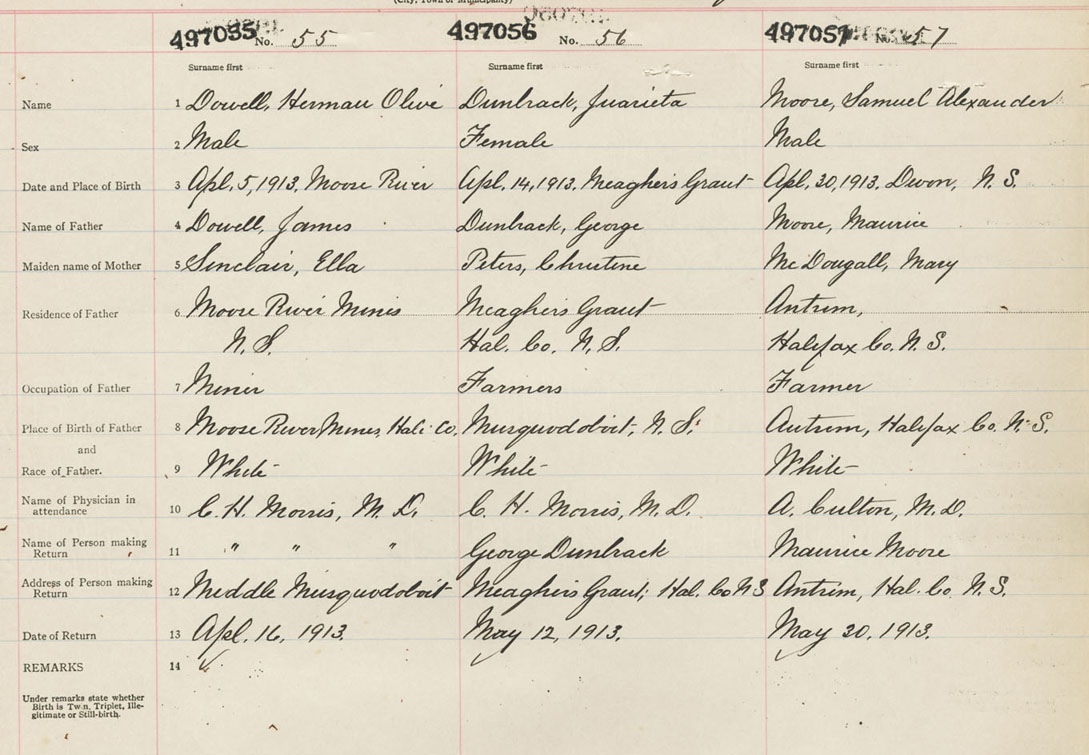 (City, Town or Municipality)
497055 No. 55 497056 No. 56 497057 No. 57
Surname first Surname first Surname first
Name 1 Dowell, Herman Olive Dunbrack, Juarieta Moore, Samuel Alexander
Sex 2 Male Female Male
Date and Place of Birth 3 Apl. 5, 1913, Moose River Apl. 14, 1913, Meaghers Grant Apl. 30, 1913. Devon, N. S.
Name of Father 4 Dowell, James Dunbrack, George Moore, Maurice
Maiden name of Mother 5 Sinclair, Ella Peters, Christine McDougall, Mary
Residence of Father 6 Moose River Mines Meaghers Grant Antrim,
N. S. Hal. Co. N. S. Halifax Co. N. S.
Occupation of Father 7 Miner Farmers Farmer
Place of Birth of Father 8 Moose River Mines, Hali Co. Musquodoboit, N. S. Antrim, Halifax Co. N. S.
and
Race of Father. 9 White White White
Name of Physician in
attendance 10 C. H. Morris, M. D. C. H. Morris, M. D. A. Culton, M. D.
Name of Person making
Return 11 " " " George Dunbrack Maurice Moore
Address of Person making
Return 12 Middle Musquodoboit Meaghers Grant, Hal. Co N S Antrim, Hal. Co. N. S.
Date of Return 13 Apl. 16, 1913. May 12, 1913. May 30, 1913.
REMARKS 14
Under remarks state whether
Birth is Twin, Triplet, Ille-
gitimate or Still-birth.